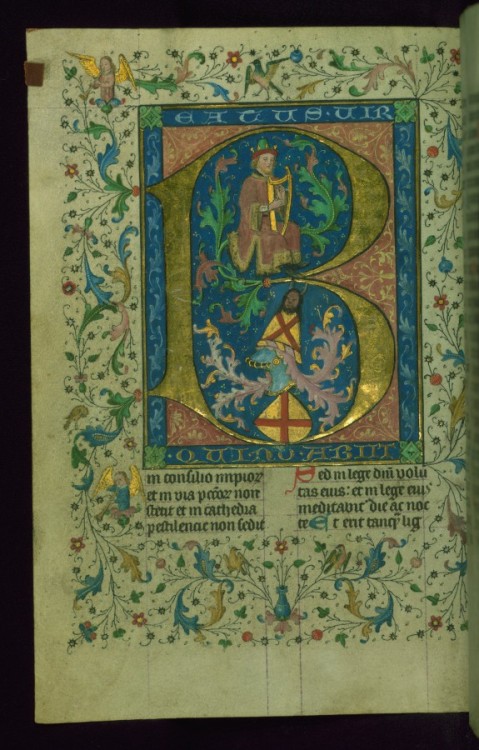 BEATUS · VIR
· QUI NU ABIIT
in consilio impior
et in via pctor non
stetit et in cathedra
pestilencie non sedit
Sed in lege dni volu
tas eius : et in lege eius
meditabit die ac noc
te Et erit tanq lig